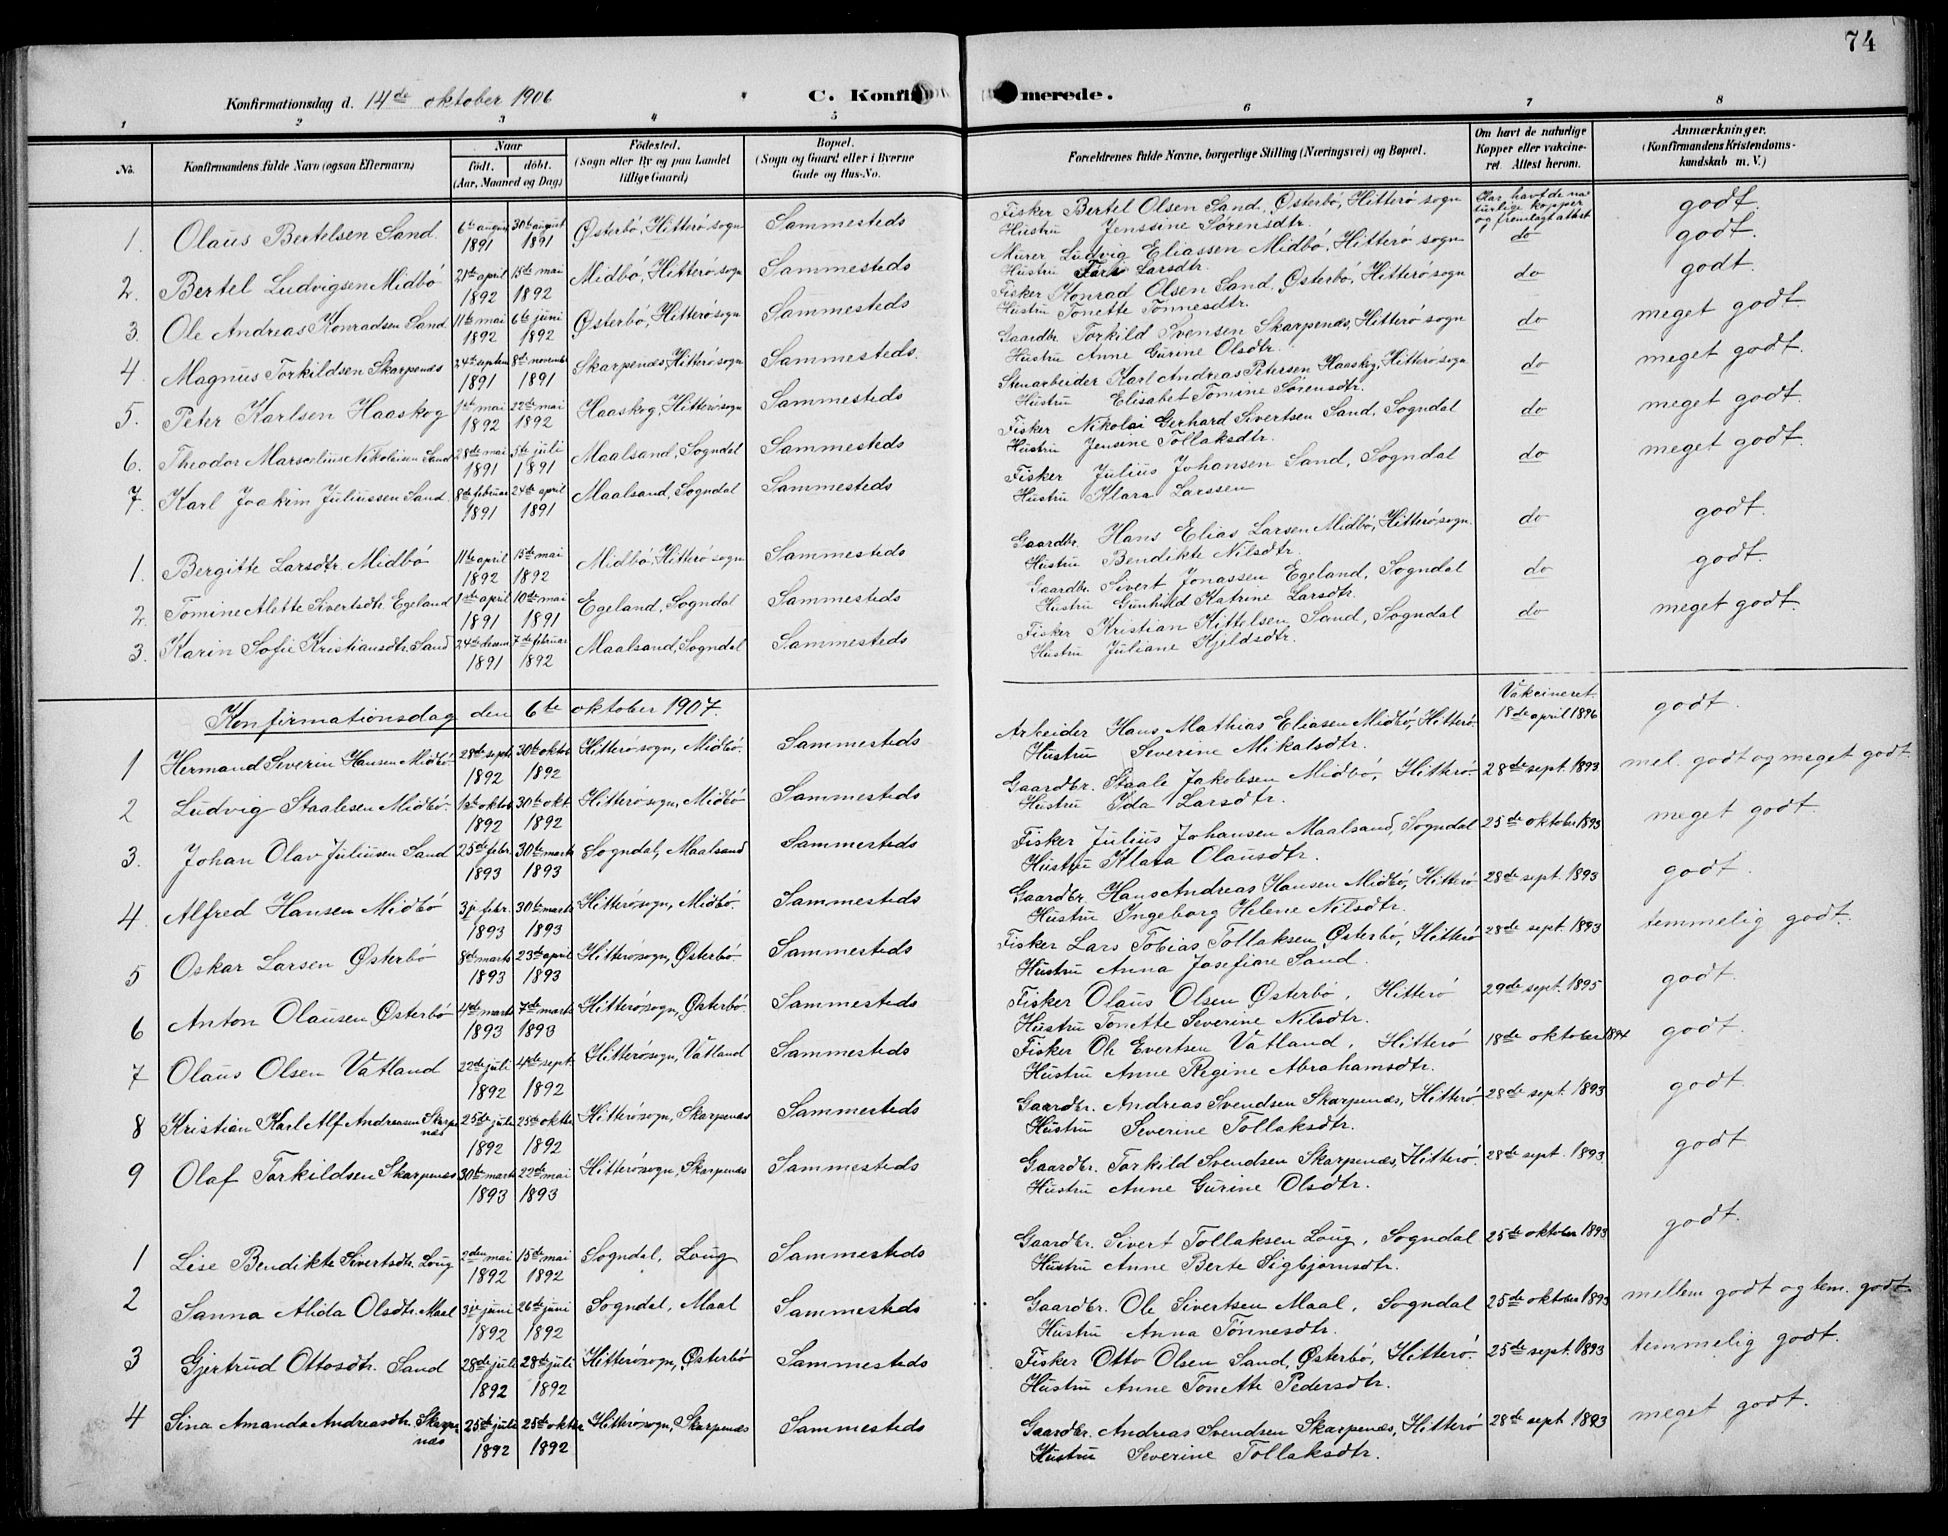 74
Konfirmationsdag d. 14de oktober 1906
C. Konfirmerede.
1 2 3 4 5 6 7 8
No. Konfirmandens fulde Navn (ogsaa Efternavn) Naar født. døbt. (Aar, Maaned og Dag) Fødested. (Sogn eller By og paa Landet tillige Gaard) Bopæl. (Sogn og Gaard eller i Byerne Gade og Hus-No. Forældrenes fulde Navne, borgerlige Stilling (Næringsvei) og Bopæl. Om havt de naturlige Kopper eller vakcineret. Attest herom. Anmærkninger. (Konfirmandens Kristendomskundskab m. V.)
1. Olaus Bertelsen Sand 6te august 1891 30te august 1891 Østerbö, Hitterö sogn Sammesteds Fisker Bertel Olsen Sand, Østerbö, Hitterö sogn Har havt de naturlige kopper og fremlagt attest godt.
Hustru Jenssine Sörensdtr.
2. Bertel Ludvigsen Midbö 21de april 1892 15de mai 1892 Midbö, Hitterö sogn Sammesteds Murer Ludvig Eliassen Midbö, Hitterö sogn do godt.
Hustru Larsdtr.
3. Ole Andreas Konradsen Sand 11te mai 1892 6te juni 1892 Østerbö, Hitterö sogn Sammesteds Fisker Konrad Olsen Sand, Østerbö, Hitterö sogn do godt.
Hustru Tonette Tönnesdtr.
4. Magnus Torkildsen Skarpenæs 24de septem 1891 8de november 1891 Skarpenæs, Hitterö sogn Sammesteds. Gaardbr. Torkild Svensen Skarpenæs, Hitterö sogn do meget godt.
Hustru Anne Gurine Olsdtr.
5. Peter Karlsen Haaskog 1ste mai 1892 22de mai 1892 Haaskog, Hitterö sogn Sammesteds Stenarbeider Karl Andreas Petersen Haaskog, Hitterö sogn do meget godt.
Hustru Elisabet Tomine Sörensdtr.
6. Theodor Marselius Nikolaisen Sand 28de mai 1891 5te juli 1891 Maalsand, Sogndal Sammesteds Fisker Nikolai Gerhard Sivertsen Sand, Sogndal do meget godt.
Hustru Jensine Tollaksdtr.
7. Karl Joakim Juliussen Sand 8de februar 1891 24de april 1891 Maalsand, Sogndal Sammesteds Fisker Julius Johansen Sand, Sogndal do meget godt.
Hustru Klara Larssen
1. Bergitte Larsdtr. Midbö 11te april 1892 15de mai 1892 Midbö, Hitterö sogn Sammesteds Gaardbr. Hans Elias Larsen Midbö, Hitterö sogn. do godt.
Hustru Bendikte Nilsdtr.
2. Tomine Alette Sivertsdtr. Egeland 1ste april 1891 10de mai 1891 Egeland, Sogndal Sammesteds Gaardbr. Sivert Jonassen Egeland, Sogndal do godt.
Hustru Gunhild Katrine Larsdtr.
3. Karin Sofie Kristiansdtr. Sand 24de decem 1891 7de februar 1892 Maalsand, Sogndal Sammesteds Fisker Kristian Kittelsen Sand, Sogndal do meget godt.
Hustru Juliane Kjeldsdtr.
Konfirmationsdag den 6te oktober 1907.
1 Hermand Severin Hansen Midbö 28de septr 1892 30te oktob. 1892 Hitterö sogn, Midbö. Sammesteds Arbeider Hans Mathias Eliasen Midbö, Hitterö Vakcineret. 18de april 1896 godt.
Hustru Severine Mikalsdtr.
2 Ludvig Staalesen Midbö. 1ste oktob. 1892 30te okt. 1892 Hitterö sogn, Midbö Sammesteds Gaardbr. Staale Jakobsen Midbö, Hitterö 28de sept. 1893 mel. godt og meget godt.
Hustru Ida Larsdtr.
3. Johan Olav Juliusen Sand 25de febr. 1893 30te marts 1893 Sogndal, Maalsand Sammesteds Fisker Julius Johansen Maalsand, Sogndal 25de oktober 1893 meget godt.
Hustru Klara Olausdtr.
4. Alfred Hansen Midbö 3je febr. 1893 30te marts 1893 Hitterö sogn, Midbö. Sammesteds Gaardbr. Hans Andreas Hansen Midbö, Hitterö 28de sept. 1893 godt.
Hustru Ingeborg Helene Nilsdtr.
5 Oskar Larsen Østerbö 8de marts 1893 23de april 1893 Hitterö sogn, Østerbö Sammesteds Fisker Lars Tobias Tollaksen Østerbö, Hitterö 28de sept. 1893 temmelig godt.
Hustru Anna Josefiare Sand.
6 Anton Olausen Østerbö 4de marts 1893 7de marts 1893 Hitterö sogn, Østerbö. Sammesteds Fisker Olaus Olsen Østerbö, Hitterö 29de sept. 1895 godt
Hustru Tonette Severine Nilsdtr.
7 Olaus Olsen Vatland 22de juli 1892 4de sept. 1892 Hitterö sogn, Vatland Sammesteds Fisker Ole Evertsen Vatland, Hitterö 18de oktober 1894 godt.
Hustru Anne Regine Abrahamsdtr.
8 Kristian Karl Alf Andreasen Skarpenæs 25de juli 1892 25de oktbr 1892 Hitterö sogn, Skarpenæs Sammesteds Gaardbr. Andreas Svendsen Skarpenæs, Hitterö 28de sept. 1893 godt
Hustru Severine Tollaksdtr.
9 Olaf Torkildsen Skarpenæs 30te marts 1893 22de mai 1893 Hitterö sogn, Skarpenæs Sammesteds Gaardbr. Torkild Svendsen Skarpenæs, Hitterö. 28de sept. 1893. godt
Hustru Anne Gurine Olsdtr.
1 Lise Bendikte Sivertsdtr. Loug 2den mai 1892 15de mai 1892 Sogndal, Loug Sammesteds Gaardbr. Sivert Tollaksen Loug, Sogndal 25de oktober 1893 godt.
Hustru Anne Berte Sigbjörnsdtr.
2 Sanna Alida Olsdtr. Maal 3je juni 1892 26de juni 1892 Sogndal, Maal Sammesteds Gaardbr. Ole Sivertsen Maal, Sogndal 25de oktober 1893 mellem godt og tem. godt
Hustru Anna Tönnesdtr.
3 Gjertrud Ottosdtr. Sand 28de juli 1892 28de juli 1892 Hitterö sogn, Østerbö Sammesteds Fisker Otto Olsen Sand, Østerbö, Hitterö. 25de sept. 1893 temmelig godt.
Hustru Anne Tonette Pedersdtr.
4 Sina Amanda Andreasdtr. Skarpenæs 25de juli 1892 25de oktbr 1892 Hitterö sogn, Skarpenæs Sammesteds Gaardbr. Andreas Svendsen Skarpenæs, Hitterö 28de sept. 1893 meget godt.
Hustru Severine Tollaksdtr.